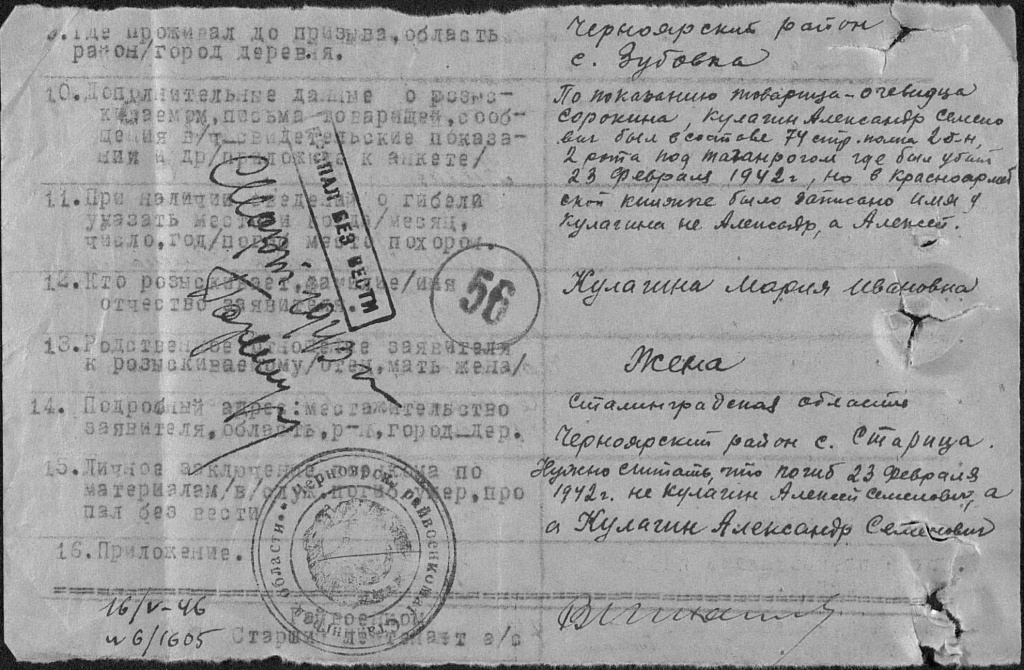 9. Где проживал до призыва, область
район/город деревня.
Черноярский район
с. Зубовка
10. Дополнительные данные о розыс-
киваемом, письма товарищей, сооб-
щения в/ч свидетельские показа-
нии и др/приложить к анкете/
По показанию товарища-очевидца
Сорокина, Кулагин Александр Семено
вич был в составе 74 стр. полка 2 б-н,
2 рота под Таганрогом где был убит
23 февраля 1942 г, но в красноармей
ской книжке было записано имя у
Кулагина не Александр, а Алексей.
11. При наличии сведений о гибели
указать место и /месяц,
число, год/ место похорон.
12. Кто розыскивает, фамилие/имя
отчество заявителя.
Кулагина Мария Ивановна
13. Родственное отношение заявителя
к розыскиваемому/отец, мать жена/
Жена
14. Подробный адрес: местажительство
заявителя, область, р-н, город дер.
Сталинградская область
Черноярский район с. Старица.
15. Личное заключение военкома по
материалам/в/служ. погиб, умер, про
пал без вести
Нужно считать, что погиб 23 февраля
1942 г. не Кулагин Алексей Семенович, а
а Кулагин Александр Семенович
16. Приложение.
ПРОПАЛ БЕЗ ВЕСТИ
Март 1943 г
56
Черноярск. райвоенкомат
области
16/V-46
№ 6/1605
Старший лейтенант а/с